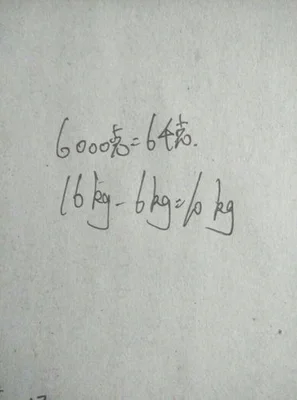 6000克=6千克.
16kg-6kg=10kg